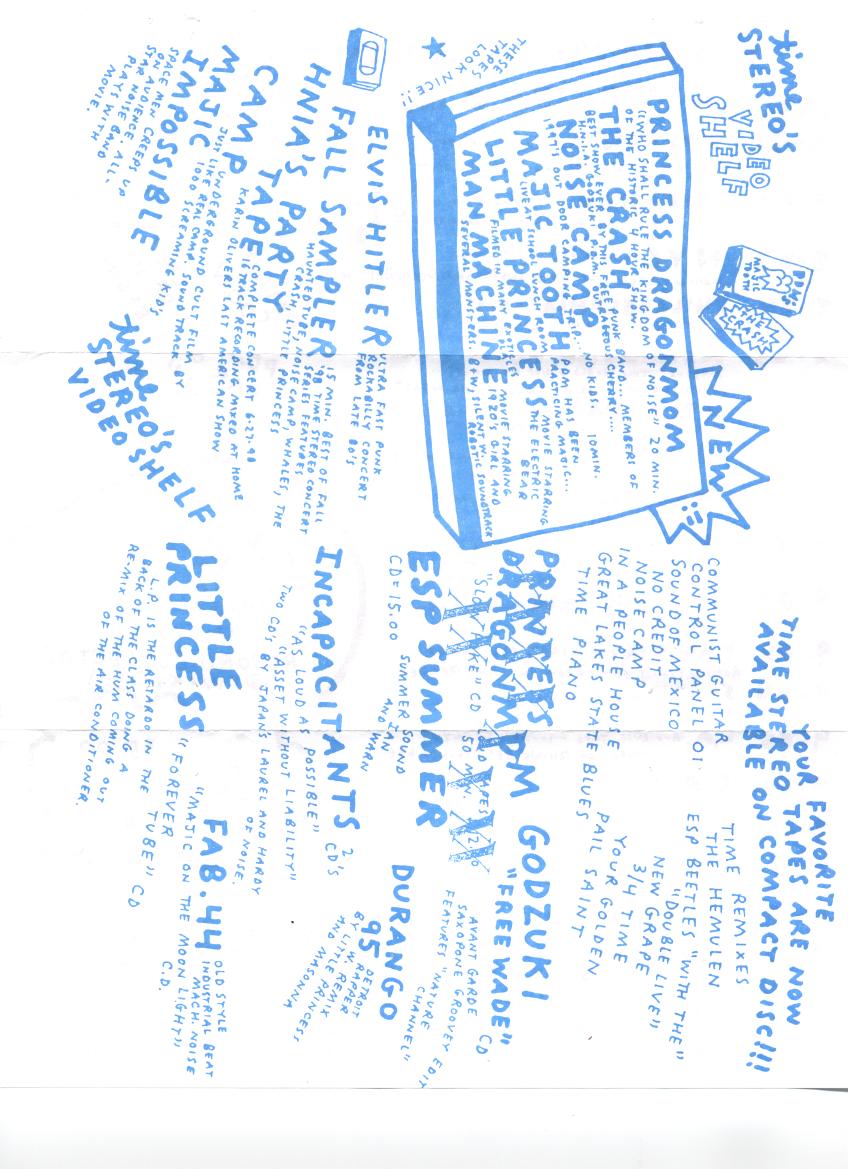 time STEREO'S
VIDEO SHELF
PDM:
MAGIC
TOOTH
THE
CRASH
NEW
!!!
THESE
TAPES
LOOK NICE!!
PRINCESS DRAGONMOM
"WHO SHALL RULE THE KINGDOM OF NOISE" 20 MIN.
OF THE HISTORIC 4 HOUR SHOW.
THE CRASH
PUNK BAND... MEMBERS OF
H.N.I.A. GODZUKI P.D.M. OUTRAGEOUS CHERRY....
BEST SHOW EVER BY THIS FREE
NOISE CAMP
NO KIDS. 10 MIN.
1997'S OUT DOOR CAMPING TRIP...
MAJIC TOOTH
PDM HAS BEEN
PRACTICING MAGIC...
LIVE AT SCHOOL LUNCH ROOM
LITTLE PRINCESS
MOVIE STARRING
THE ELECTRIC
BEAR
FILMED IN MANY EXOTIC LES
MAN MACHINE
MOVIE STARRING
1920'S GIRL AND
SEVERAL MONSTERS. B+W, SILENT W. ROBOTIC SOUNDTRACK
ELVIS HITLER
ULTRA FAST PUNK
ROCKABILLY CONCERT
FROM LATE 80'S
FALL SAMPLER
15 MIN. BEST OF FALL
'98 TIME STEREO CONCERT
SERIES FEATURES
HAUNTED TUBES, NOISE CAMP, WHALES, THE
CRASH, LITTLE PRINCESS
HNIA'S PARTY
COMPLETE CONCERT 6-27-98
CAMP TAPE
16 TRACK RECORDING MIXED AT HOME
KARIN OLIVERS LAST AMERICAN SHOW
MAJIC
JUST LIKE REAL CAMP. SOUNDTRACK BY
1000 SCREAMING KID'S
IMPOSSIBLE
UNDERGROUND CULT FILM
SPACE MEN CREEPS UP
ON AUDIENCE. ALL-
STAR NOISE BAND
PLAYS WITH
MOVIE.
time STEREO'S
VIDEO SHELF
YOUR FAVORITE
TIME STEREO TAPES ARE NOW
AVAILABLE ON COMPACT DISC!!!
COMMUNIST GUITAR
CONTROL PANEL 01.
SOUND OF MEXICO
NO CREDIT
NOISE CAMP
IN A PEOPLE HOUSE
GREAT LAKES STATE BLUES
TIME PIANO
TIME REMIXES
THE HEMULEN
ESP BEETLES "WITH THE"
"DOUBLE LIVE"
NEW GRAPE
3/4 TIME
YOUR GOLDEN
PAIL SAINT
PRINCESS
DRAGONMOM
CD
GODZUKI
"FREE WADE"
CD
AVANT GARDE
SAXOPONE GROOVEY EDIT
FEATURES "NATURE
CHANNEL"
ESP SUMMER
CD=15.00 SUMMER SOUND
IAN
AND WARN
DURANGO
95
DETROIT
RAPPER
BY L.W. REMIX
AND LITTLE PRINCESS
MASONNA
INCAPACITANTS 2 CD'S
"AS LOUD AS POSSIBLE"
"ASSET WITHOUT LIABILITY"
TWO CD'S BY JAPANS LAUREL AND HARDY
OF NOISE.
LITTLE
PRINCESS
"FOREVER TUBE" CD
L.P. IS THE RETARDO IN THE
BACK OF THE CLASS DOING A
RE-MIX OF THE HUM COMING OUT
OF THE AIR CONDITIONER.
FAB.44
OLD STYLE
INDUSTRIAL BEAT
MACH. NOISE
"MAJIC ON THE MOON LIGHT"
C.D.